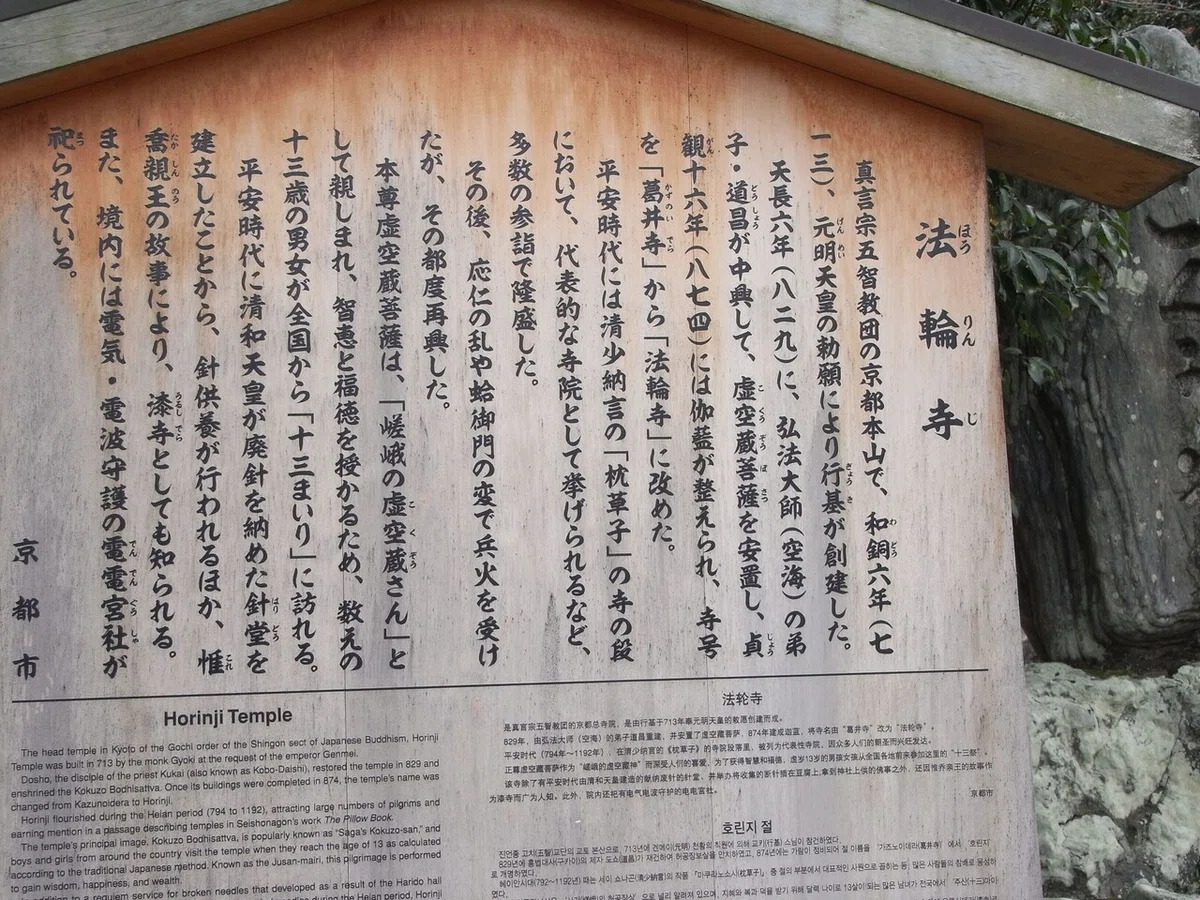 法輪寺
真言宗五智教団の京都本山で、和銅六年（七
一三）、元明天皇の勅願により行基が創建した。
天長六年（八二九）に、弘法大師（空海）の弟
子・道昌が中興して、虚空蔵菩薩を安置し、貞
観十六年（八七四）には伽藍が整えられ、寺号
を「葛井寺」から「法輪寺」に改めた。
平安時代には清少納言の「枕草子」の寺の段
において、代表的な寺院として挙げられるなど、
多数の参詣で隆盛した。
その後、応仁の乱や蛤御門の変で兵火を受け
たが、その都度再興した。
本尊虚空蔵菩薩は、「嵯峨の虚空蔵さん」と
して親しまれ、智恵と福徳を授かるため、数えの
十三歳の男女が全国から「十三まいり」に訪れる。
平安時代に清和天皇が廃針を納めた針堂を
建立したことから、針供養が行われるほか、惟
喬親王の故事により、漆寺としても知られる。
また、境内には電気・電波守護の電電宮社が
祀られている。
京都市
Horinji Temple
The head temple in Kyoto of the Gochi order of the Shingon sect of Japanese Buddhism, Horinji
Temple was built in 713 by the monk Gyoki at the request of the emperor Genmei.
Dosho, the disciple of the priest Kukai (also known as Kobo-Daishi), restored the temple in 829 and
enshrined the Kokuzo Bodhisattva. Once its buildings were completed in 874, the temple's name was
changed from Kazunoidera to Horinji.
Horinji flourished during the Heian period (794 to 1192), attracting large numbers of pilgrims and
earning mention in a passage describing temples in Seishonagon's work The Pillow Book.
The temple's principal image, Kokuzo Bodhisattva, is popularly known as "Saga's Kokuzo-san," and
boys and girls from around the country visit the temple when they reach the age of 13 as calculated
according to the traditional Japanese method. Known as the Jusan-mairi, this pilgrimage is performed
to gain wisdom, happiness, and wealth.
In addition to a requiem service for broken needles that developed as a result of the Harido hall
法轮寺
是真言宗五智教团的京都总寺院，是由行基于713年奉元明天皇的敕愿创建而成。
829年，由弘法大师（空海）的弟子道昌重建，并安置了虚空藏菩萨，874年建成伽蓝，将寺名由“葛井寺”改为“法轮寺”。
平安时代（794年～1192年），在清少纳言的《枕草子》的寺院段落里，被列为代表性寺院，因众多人们的朝圣而兴旺发达。
正尊虚空藏菩萨作为“嵯峨的虚空藏神”而深受人们的喜爱，为了获得智慧和福德，虚岁13岁的男孩女孩从全国各地前来参加这里的“十三祭”。
该寺除了有平安时代由清和天皇建造的献纳废针的针堂、并举办将收集的断针插在豆腐上，拿到神社上供的佛事之外、还因惟乔亲王的故事作
为漆寺而广为人知。此外，院内还祀有电气电波守护的电电宫社。
京都市
호린지 절